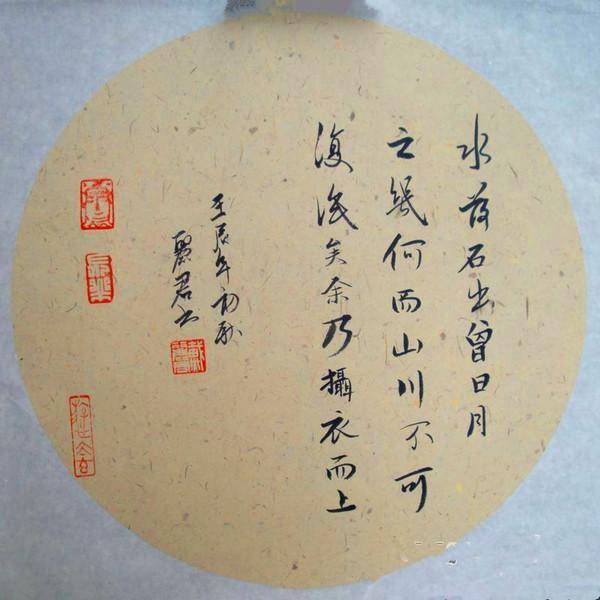 水落石出曾日月
之幾何而山川不可
復識矣余乃攝衣而上
壬辰年初秋
麗君书